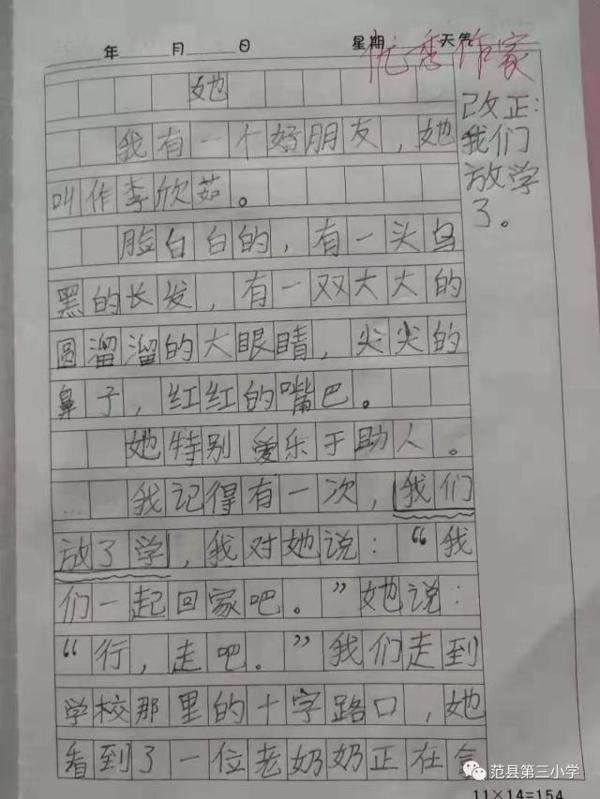 年 月 日 星期 天气
优秀作家
她
我有一个好朋友，她
叫作李欣茹。
脸白白的，有一头乌
黑的长发，有一双大大的
圆溜溜的大眼睛，尖尖的
鼻子，红红的嘴巴。
她特别爱乐于助人。
我记得有一次，我们
放了学，我对她说：“我
们一起回家吧。”她说：
“行，走吧。”我们走到
学校那里的十字路口，她
看到了一位老奶奶正在拿
改正：
我们
放学
了。
范县第三小学
11×14=154